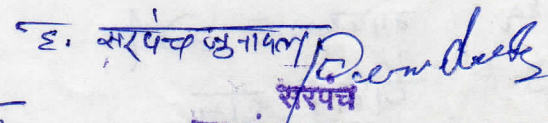 ह. सरपंच जुनापल
सरपंच